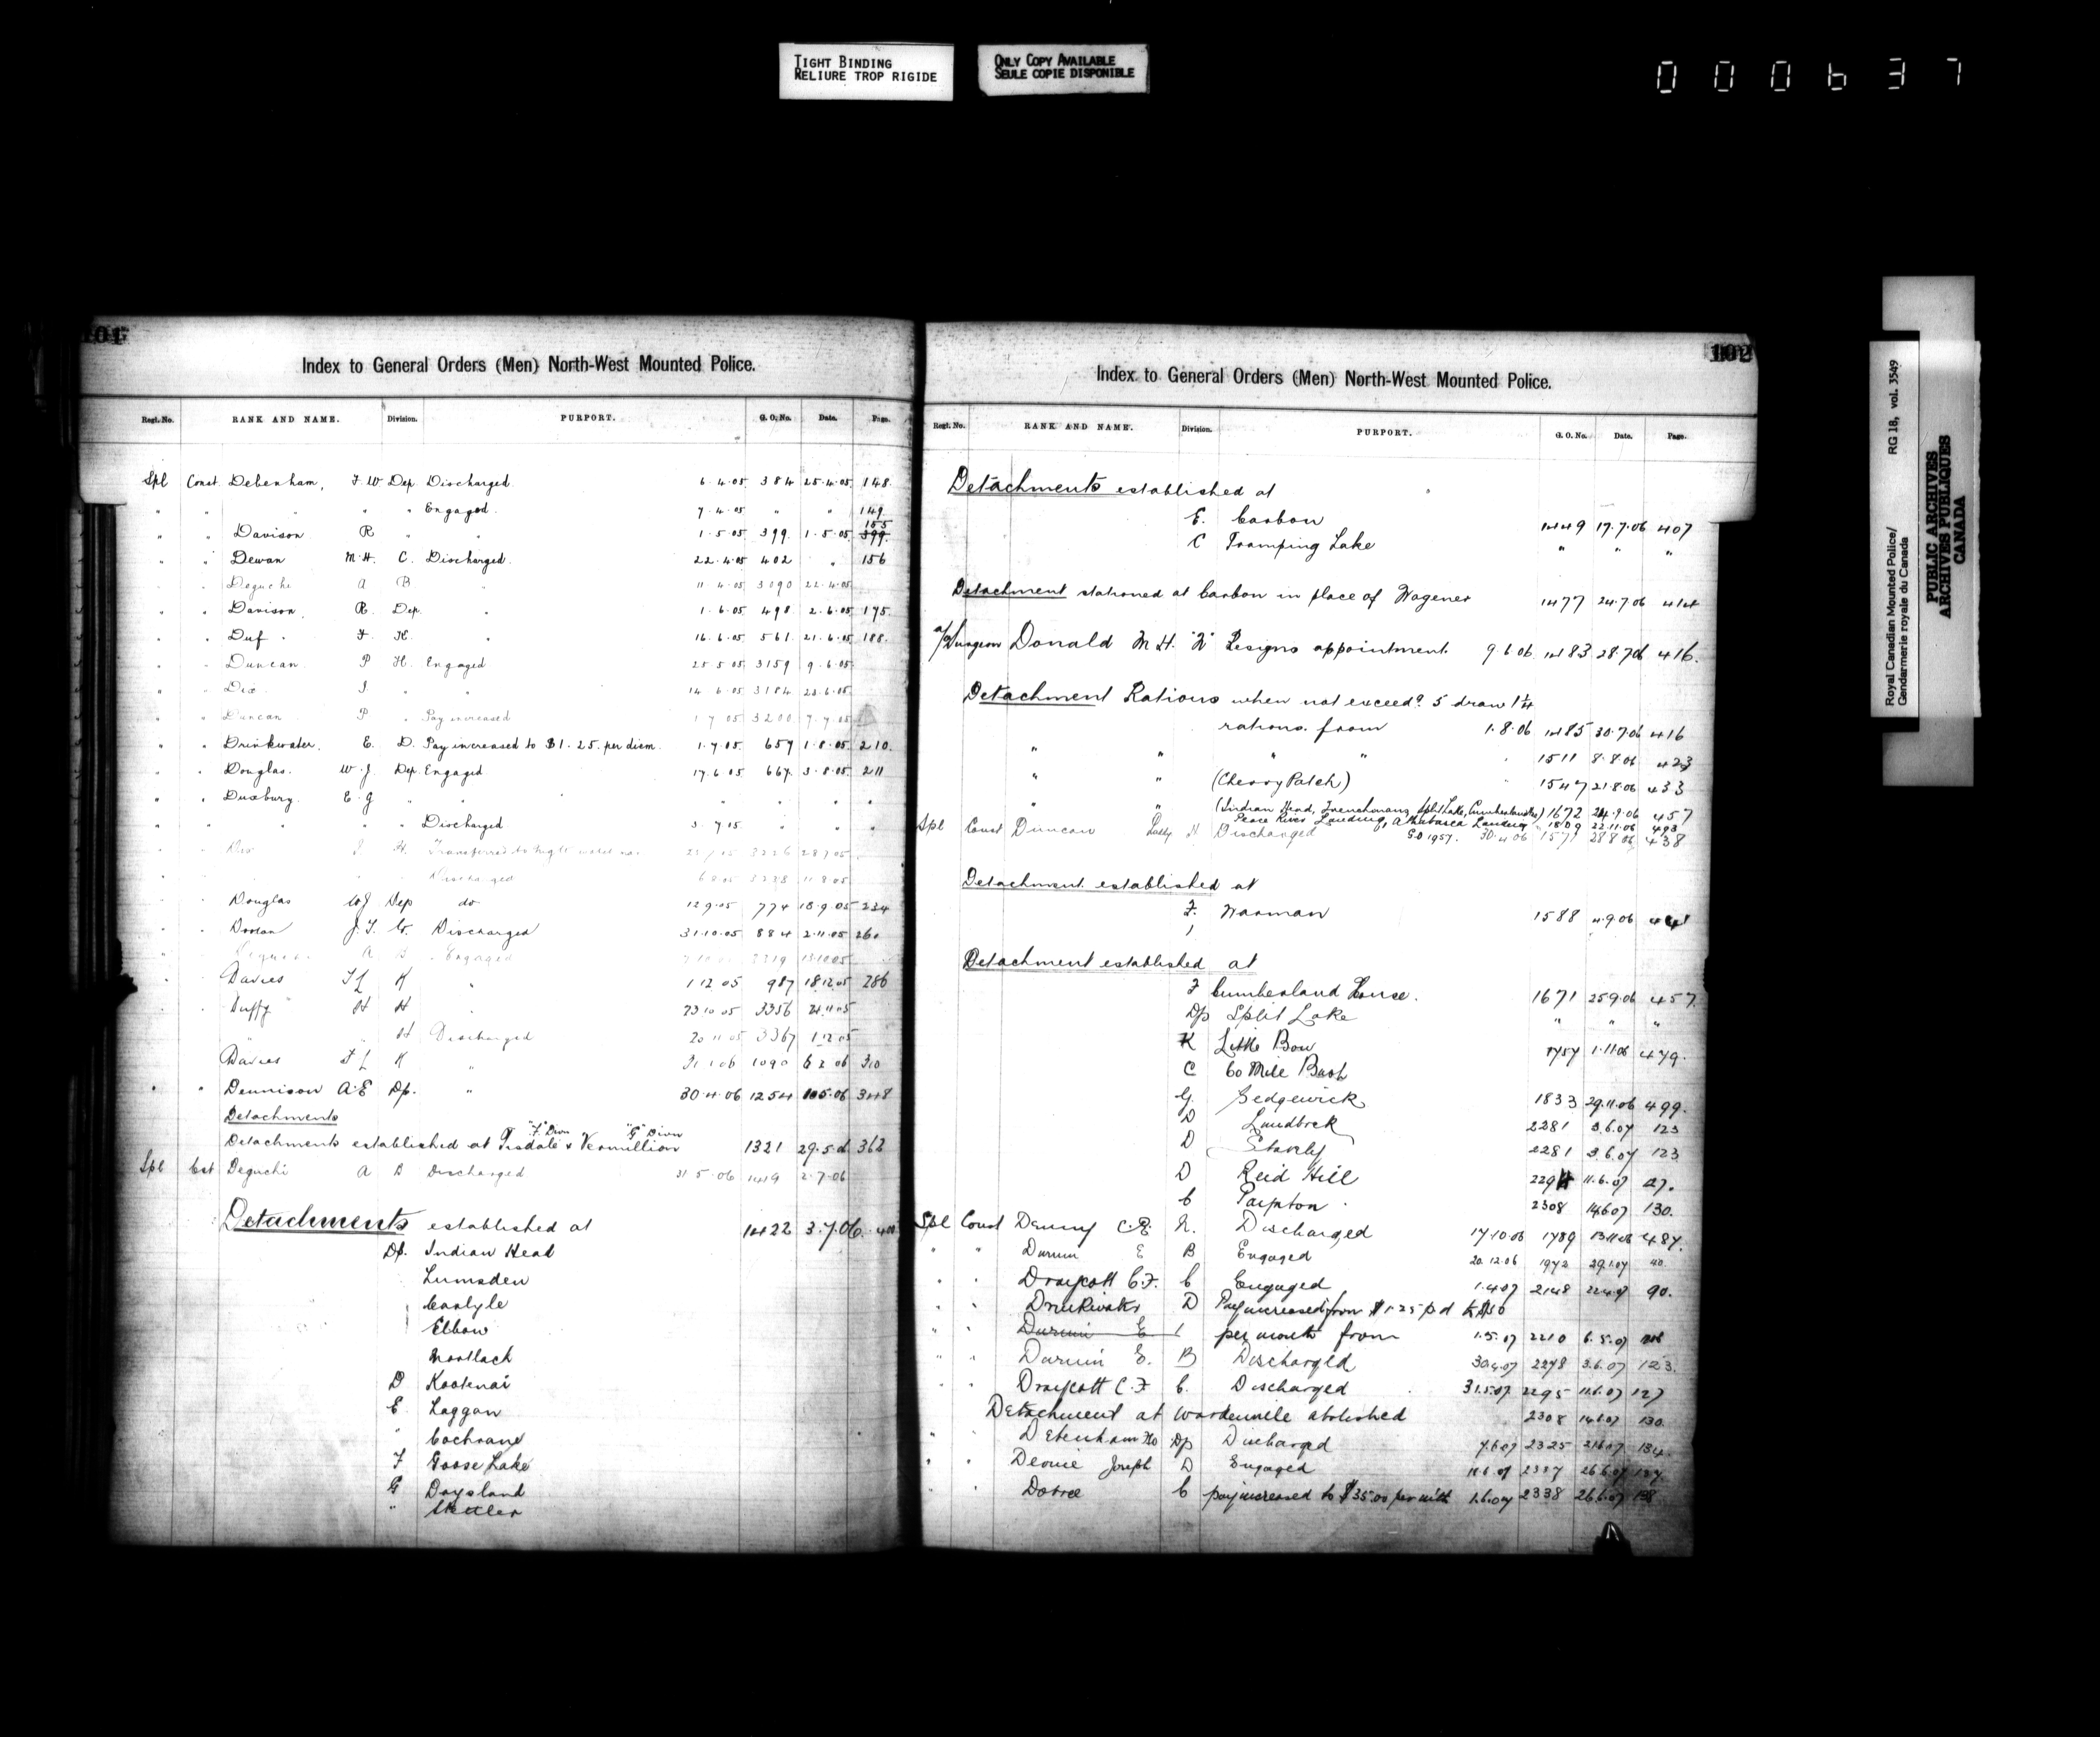 TIGHT BINDING
RELIURE TROP RIGIDE
ONLY COPY AVAILABLE
SEULE COPIE DISPONIBLE
000637
101
Index to General Orders (Men) North-West Mounted Police.
Regt. No. RANK AND NAME. Division. PURPORT. G. O. No. Date. Page.
Spl Const. Debenham, F. W Dep Discharged 6.4.05 384 25.4.05 148
" " " " Engaged. 7.4.05 " " 149
" " Davison R " " 1.5.05 399. 1.5.05 155 399.
" " Dewan M.H. C. Discharged. 22.4.05 402 " 156
" " Deguchi A B " 11 4.05 3090 22.4.05
" " Davison, R. Dep. " 1.6.05 498 2.6.05 175.
" " Duf F. H. " 16.6.05 561. 21.6.05 188.
" " Duncan P H. Engaged 25 5 05 3159 9.6.05
" " Dix J. " " 14 6.05 3184 23.6.05
" " Duncan P " Pay increased 1 7 05 3200 7.7.05
" " Drinkwater, E. D. Pay increased to $1.25. per diem. 1.7.05. 657 1.8.05. 210.
" " Douglas. W.J. Dep Engaged 17.6.05 667. 3.8.05. 211
" " Duxbury. E.G " " " " " "
" " " " " Discharged 3. 7 05 " " "
" " Dix J H. Transferred to 3226 28 7 05
" Discharged 6 8 05 11 8 05
" " Douglas WJ Dep do 12 9.05 774 18.9.05 234
" " Doolan J.T. G. Discharged 31.10.05 884 2.11.05 260
A B Engaged
" Davies F L K " 1 12 05 987 18.12.05 286
" Duffy H H " 23 10 05 3356 24.11.05
" " H Discharged 20 11 05 3367 1.12.05
Davies F L K " 31 1 06 1090 6 2 06 310
" " Dennison A.E Dp. " 30.4.06 1254 10.5.06 348
Detachments
"F" Divn "G" Divn
Detachments established at Tisdale & Vermillion 1321 29.5.06 362
Spl Cst Deguchi A B Discharged 31.5.06 1419 2.7.06
Detachments established at 1422 3.7.06. 400
Dp. Indian Head
Lumsden
Carlyle
Elbow
Mortlach
D Kootenai
E Laggan
" Cochrane
F Goose Lake
G Daysland
" Stettler
102
Index to General Orders (Men) North-West Mounted Police.
Regt. No. RANK AND NAME. Division. PURPORT. G. O. No. Date. Page.
Detachments established at
E. Carbon 1449 17.7.06 407
C Tramping Lake " " "
Detachment stationed at Carbon in place of Wagener 1477 24.7.06 414
a/a/Surgeon Donald M H. "N" Resigns appointment 9.6.06 1483 28.7.06 416.
Detachment Rations when not exceedg 5 draw 1¼
rations from 1.8.06 1485 30.7.06 416
" " " " 1511 8.8.06 423
" " (Cherry Patch) 1547 21.8.06 433
" " (Indian Head, Frenchmans, Split Lake, Cumberland Hse) 1672 24.9.06 457
Peace River Landing, Athabasca Landing 1809 22.11.06 493
Spl Const Duncan H Discharged G.O 1957. 30.4.06 1571 28 8 06 438
Detachment established at
F. Warman 1588 4.9.06
Detachment established at
F Cumberland House. 1671 25.9.06 457.
Dp Split Lake " " "
K Little Bow 1757 1.11.06 479.
C 60 Mile Bush
G. Sedgewick 1833 29.11.06 499.
D Lundbreck 2281 3.6.07 123
D Stavely 2281 3.6.07 123
D Reid Hill 11.6.07 27.
C Paynton 2308 14.6.07 130.
Spl Const Denny C.E. N. Discharged 17.10.06 1789 13.11.06 487.
" " Durnin E B Engaged 20.12.06 1972 29.1.07 40
" " Draycott C.F. C Engaged 1.4.07 2148 22.4.07 90.
" " Drinkwater D Pay increased from $1.25 p d to $50
" " Durnin E per month from 1.5.07 2210 6.5.07
" " Durnin E. B Discharged 30.4.07 2278 3.6.07 123.
" " Draycott C.F C. Discharged 31.5.07 2295 11.6.07 127
Detachment at Wardenville abolished 2308 14.6.07 130.
" " Debenham Dp Discharged 7.6.07 2325 21.6.07 134.
" " Dennie Joseph D Engaged 11.6.07 2337 26.6.07 137
" " Dobree C pay increased to $35.00 per mth 1.6.07 2338 26.6.07 138
Royal Canadian Mounted Police/ RG 18, vol. 3549
Gendarmerie royale du Canada
PUBLIC ARCHIVES
ARCHIVES PUBLIQUES
CANADA